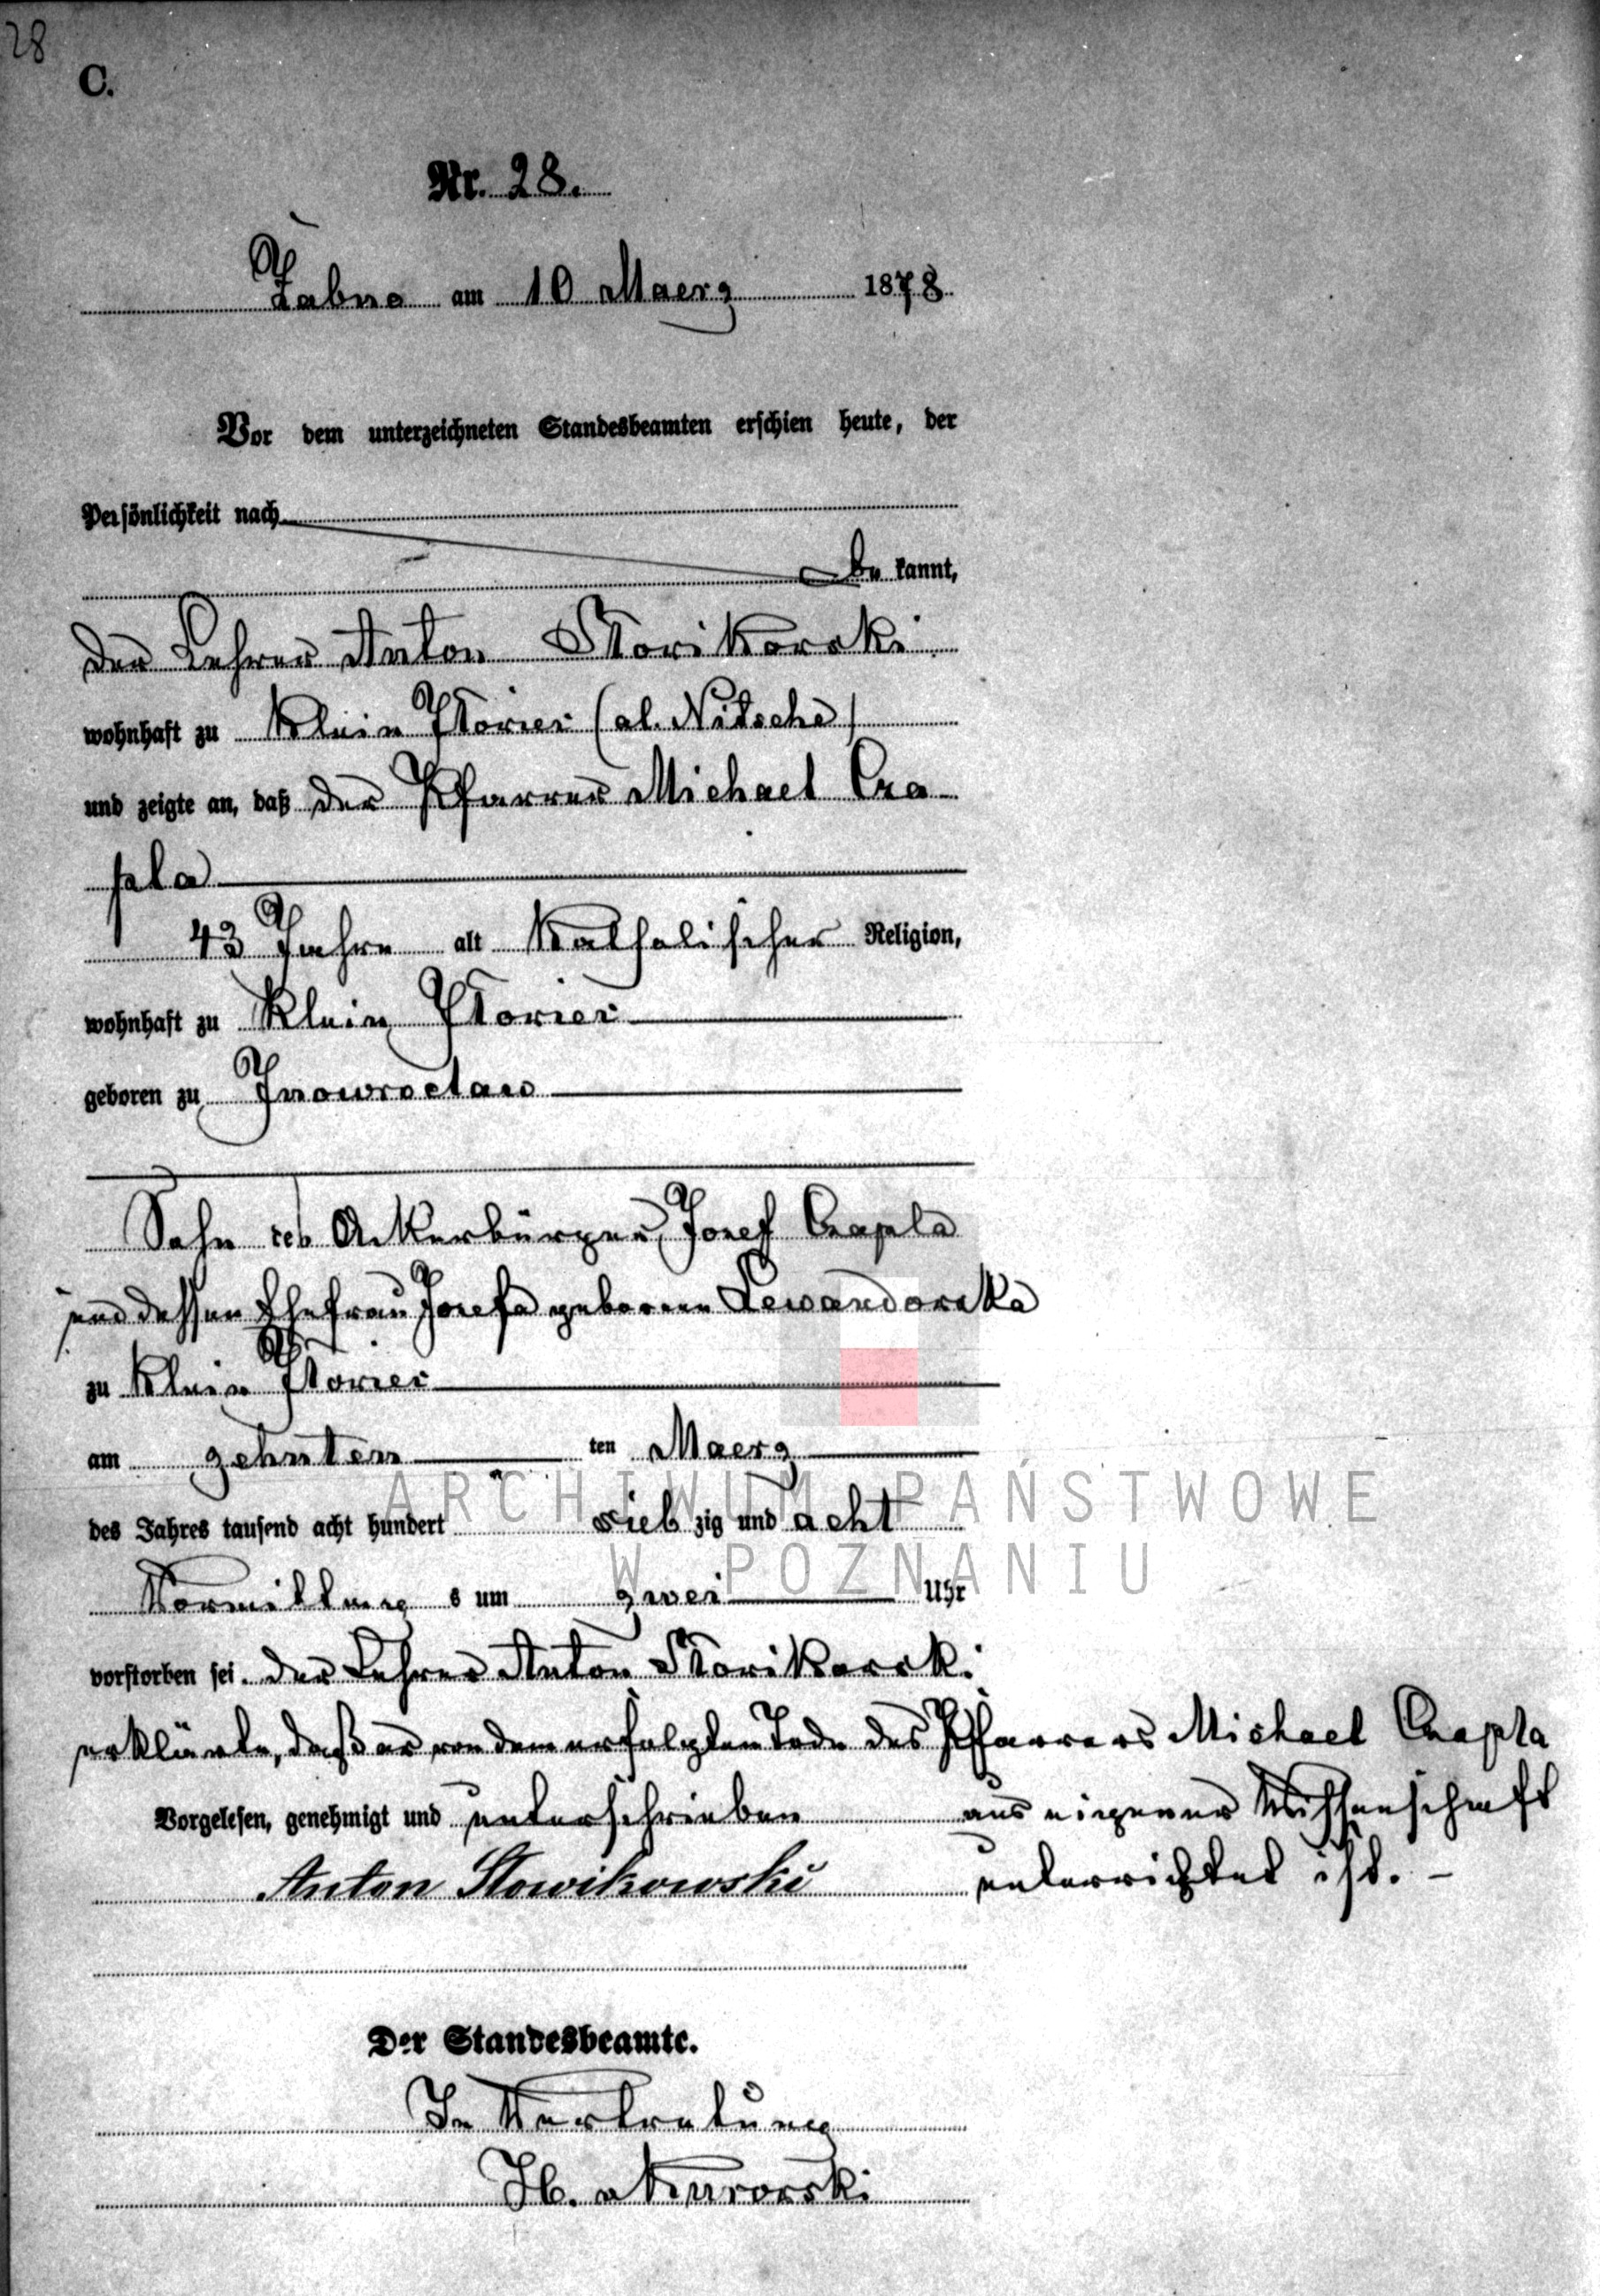 28
C.
Nr. 28.
Żabno am 10 Maerz 1878.
Vor dem unterzeichneten Standesbeamten erschien heute, der
Persönlichkeit nach
be kannt,
der Lehrer Anton Słowikowski
wohnhaft zu Klein (al. Nitsche)
und zeigte an, daß der Pfarrer Michael Cza-
pla
43 Jahre alt katholischer Religion,
wohnhaft zu Klein
geboren zu Inowroclaw
Sohn des Ackerbürger Josef Czapla
und dessen Ehefrau Josefa geborene Lewandowska
zu Klein
am zehnten ten Maerz
des Jahres tausend acht hundert sieb zig und acht
Vormittag s um zwei Uhr
vorstorben sei. der Lehrer Anton Słowikowski
erklärte, daß er von dem erfolgten Tode des Pfarrers Michael Czapla
Vorgelesen, genehmigt und unterschrieben aus eigener Wissenschaft
Anton Słowikowski unterrichtet ist. –
Der Standesbeamte.
In Vertretung
ARCHIWUM PAŃSTWOWE
W POZNANIU